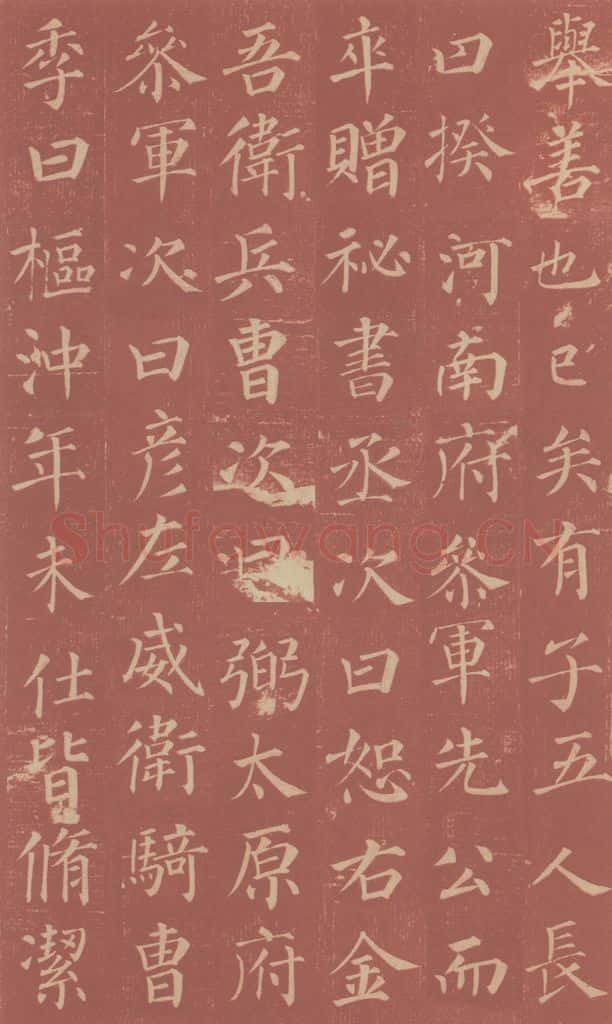 舉善也已矣有子五人長
曰揆河南府叅軍先公而
卒贈祕書丞次曰恕右金
吾衛兵曹次曰弼太原府
叅軍次曰彦左威衛騎曹
季曰樞沖年未仕皆脩潔
Shufawang.CN